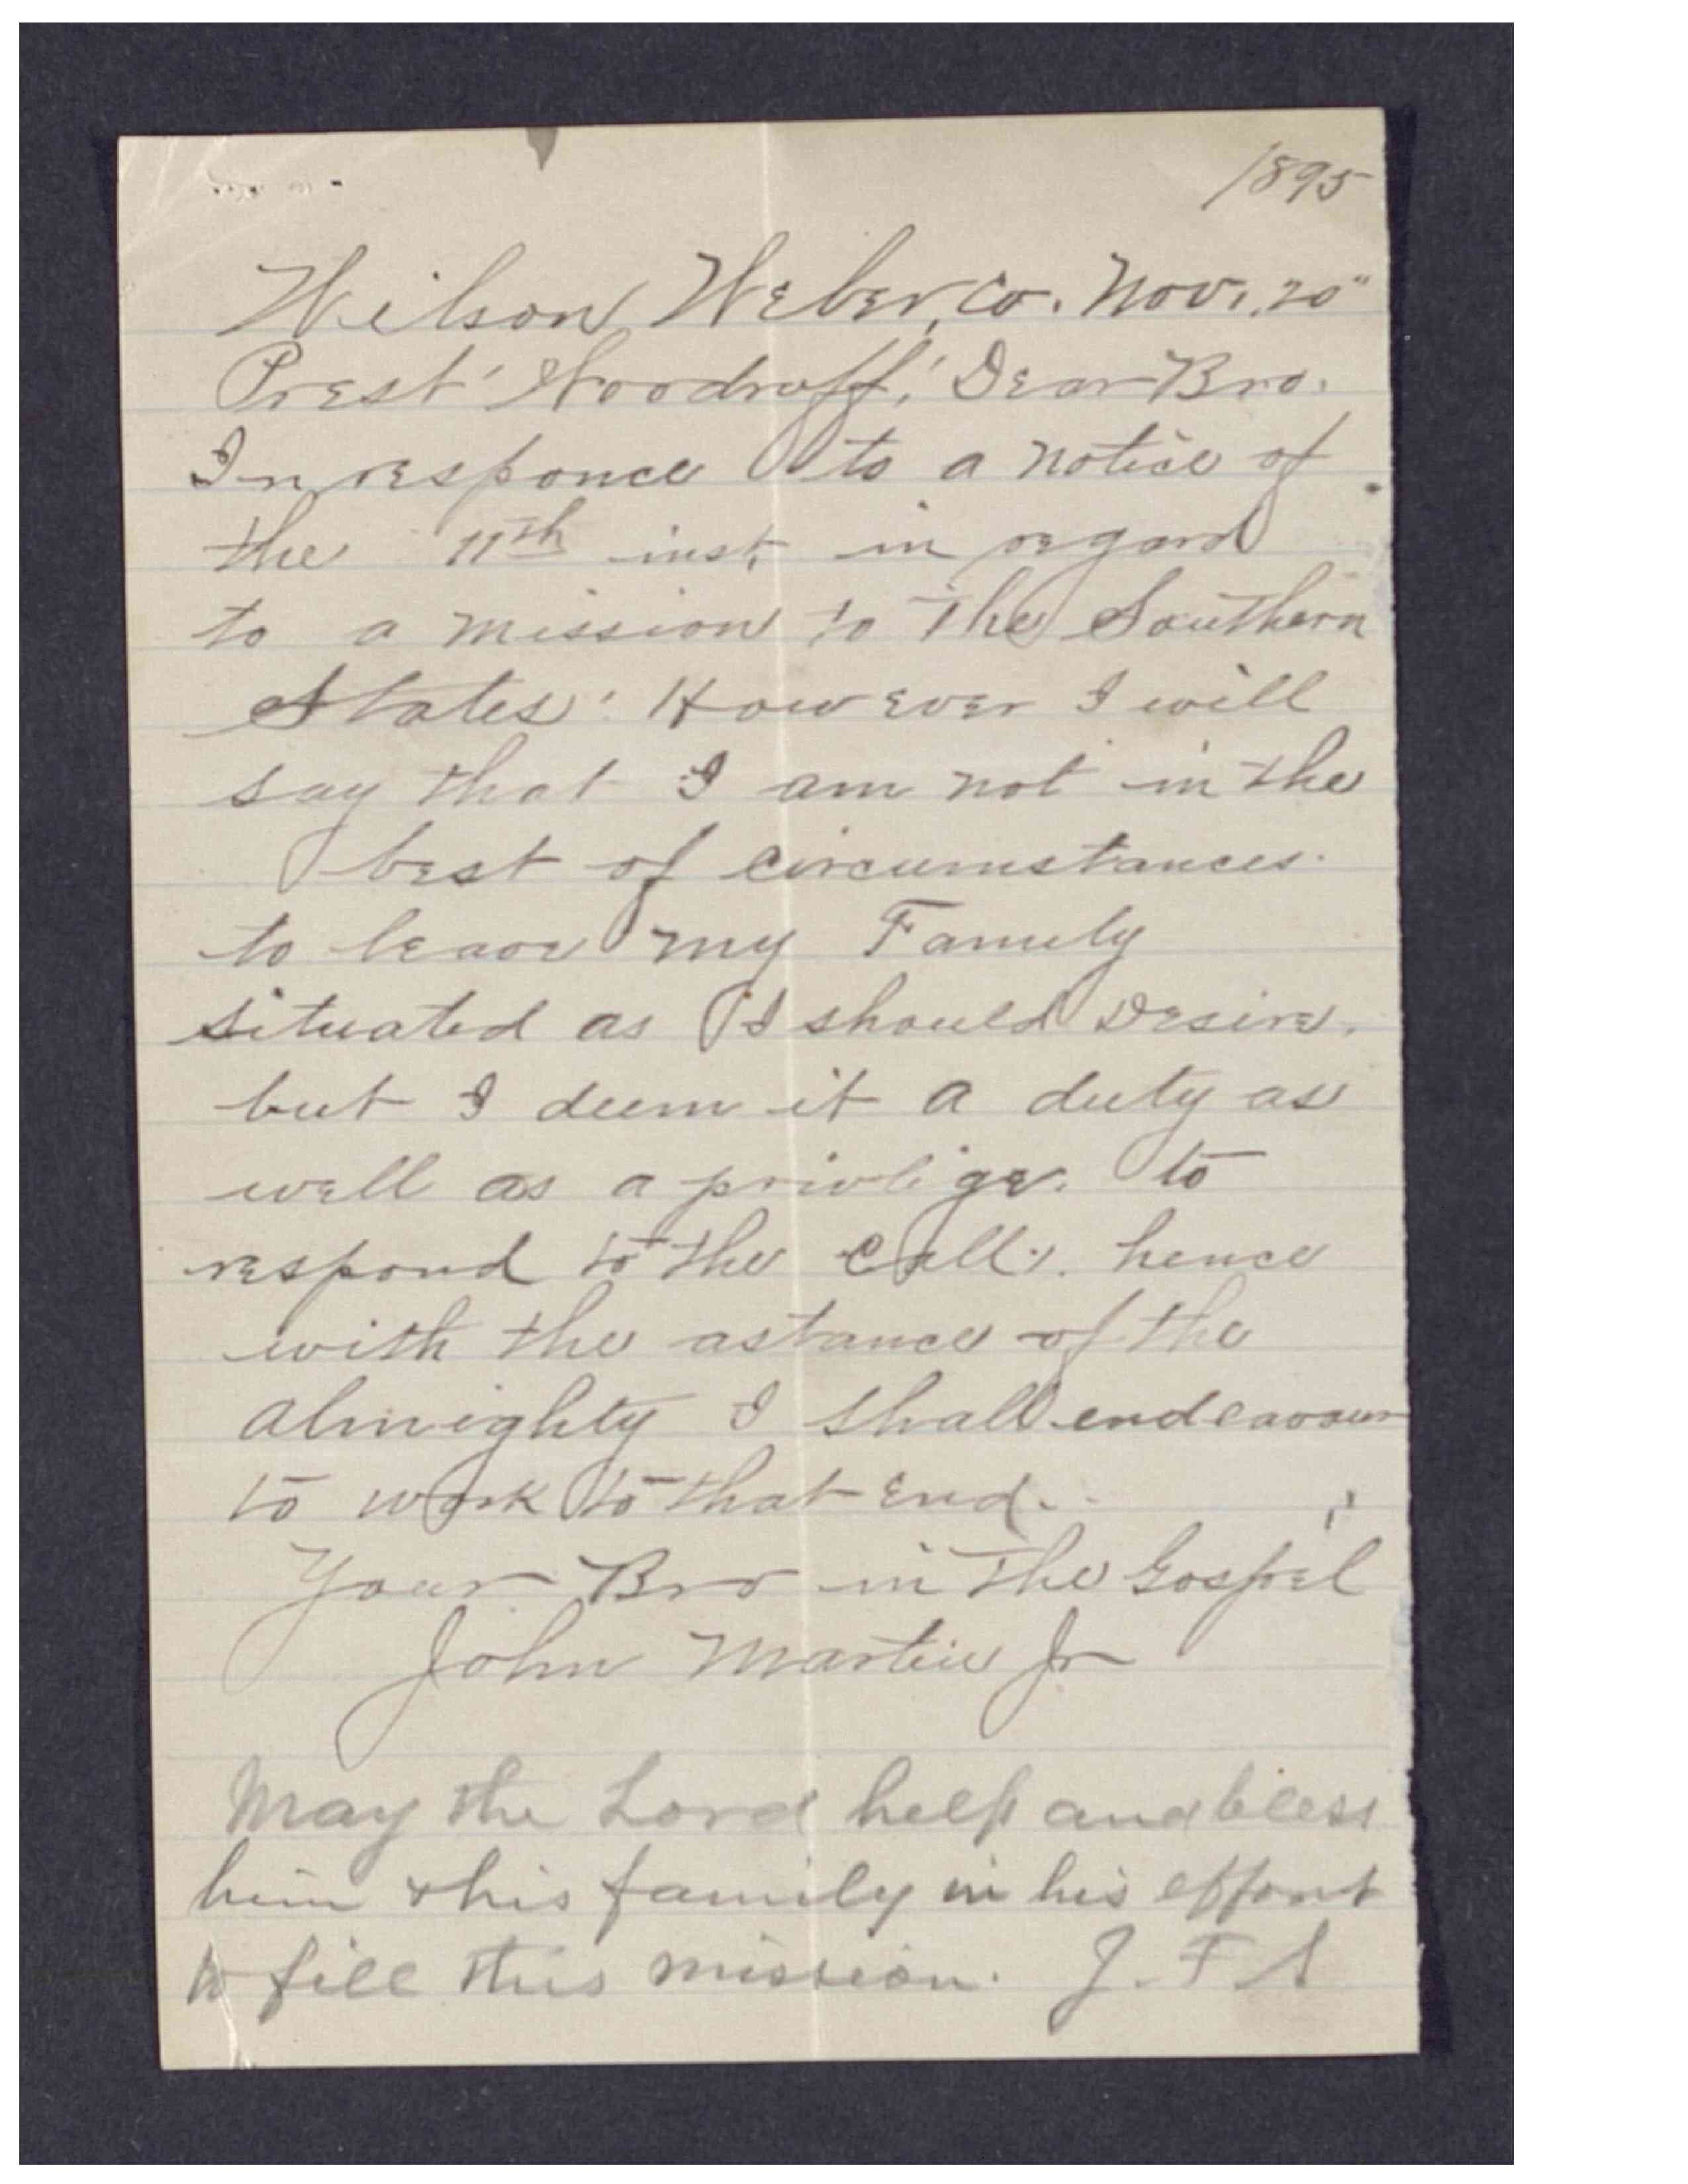 1895
Wilson, Weber, Co. Nov. 20"
Prest' Woodruff,' Dear Bro.
In responce to a notice of
the 11th inst, in regard
to a mission to the Southern
States: However I will
say that I am not in the
best of circumstances.
to leave my Family
situated as I should Desire.
but I deem it a duty as
well as a privlige. to
respond to the call. hence
with the astance of the
almighty I shall endeavour
to work to that End.
Your Bro in the Gospel
John Martin Jr
May the Lord help and bless
him & his family in his effort
to fill this mission. J. F S